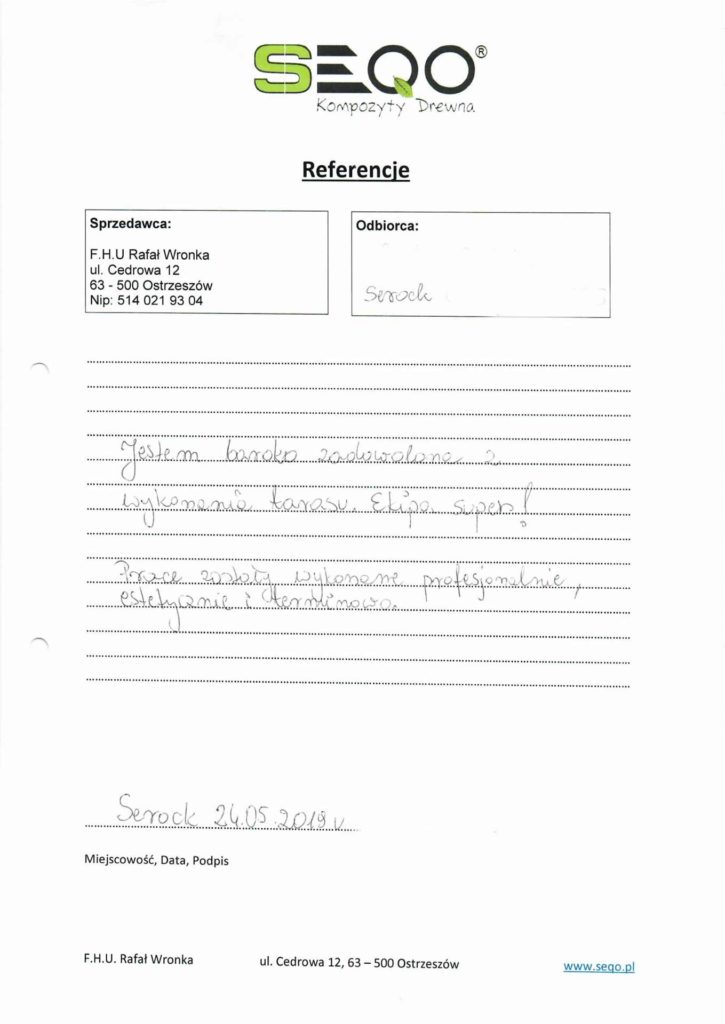 SEQO®
Kompozyty Drewna
Referencje
Sprzedawca:
F.H.U Rafał Wronka
ul. Cedrowa 12
63 - 500 Ostrzeszów
Nip: 514 021 93 04
Odbiorca:
Serock
Jestem bardzo zadowolona z
wykonania tarasu. Ekipa super!
Prace zostały wykonane profesjonalnie,
estetycznie i terminowo.
Serock 24.05.2019 r.
Miejscowość, Data, Podpis
F.H.U. Rafał Wronka ul. Cedrowa 12, 63 – 500 Ostrzeszów www.seqo.pl